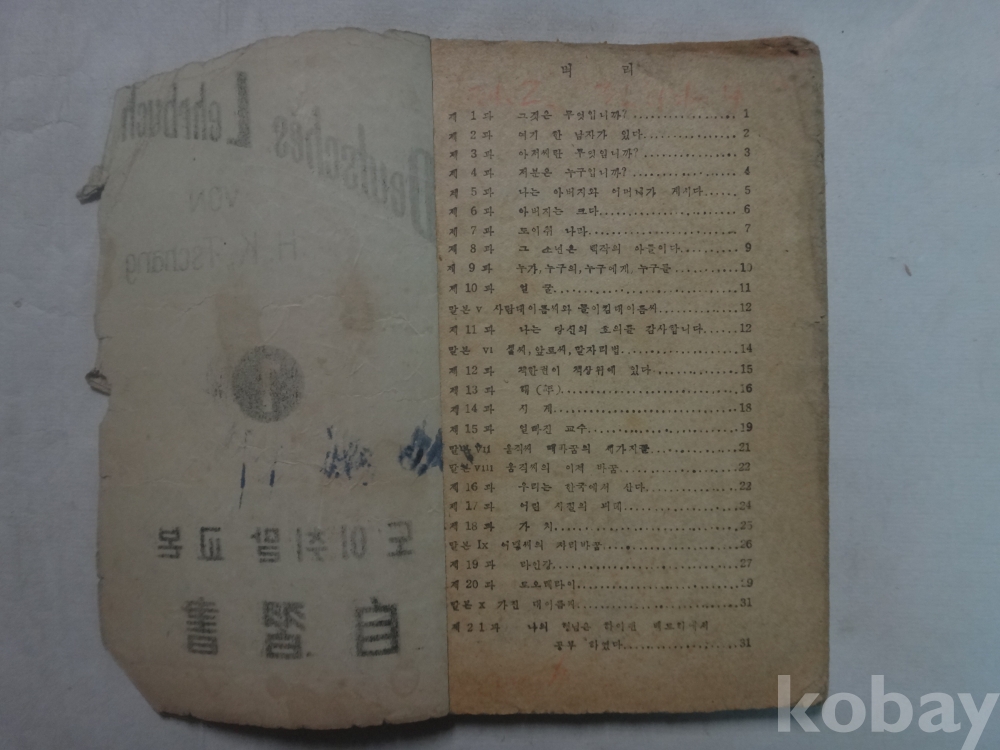 Deutsches Lehrbuch
VON
H. K. Tschang
1
도이취말 교본
自習書
벼 리
제 1 과 그것은 무엇입니까? 1
제 2 과 여기 한 남자가 있다 2
제 3 과 무엇입니까? 3
제 4 과 저분은 누구입니까? 4
제 5 과 나는 아버지와 어머니가 계시다 5
제 6 과 아버지는 크다 6
제 7 과 도이취 나라 7
제 8 과 그 소년은 백작의 아들이다 9
제 9 과 누가, 누구의, 누구에게, 누구를 10
제 10 과 얼 굴 11
말본 v 사람대이름씨와 12
제 11 과 나는 당신의 호의를 감사합니다 12
말본 vi 셈씨, 앞토씨, 말자리법 14
제 12 과 책한권이 책상위에 있다 15
제 13 과 해 (年) 16
제 14 과 시 계 18
제 15 과 얼빠진 교수 19
말본 vii 움직씨 세가지꼴 21
말본 viii 움직씨의 이적 바꿈 22
제 16 과 우리는 한국에서 산다 23
제 17 과 어린 시절의 24
제 18 과 가 치 25
말본 Ix 어떻씨의 자리바꿈 26
제 19 과 라인강 27
제 20 과 로오렐라이 29
말본 x 가진 대이름씨 31
제 21 과 나의 형님은 하이델베르히에서
공부 하였다 31
kobay